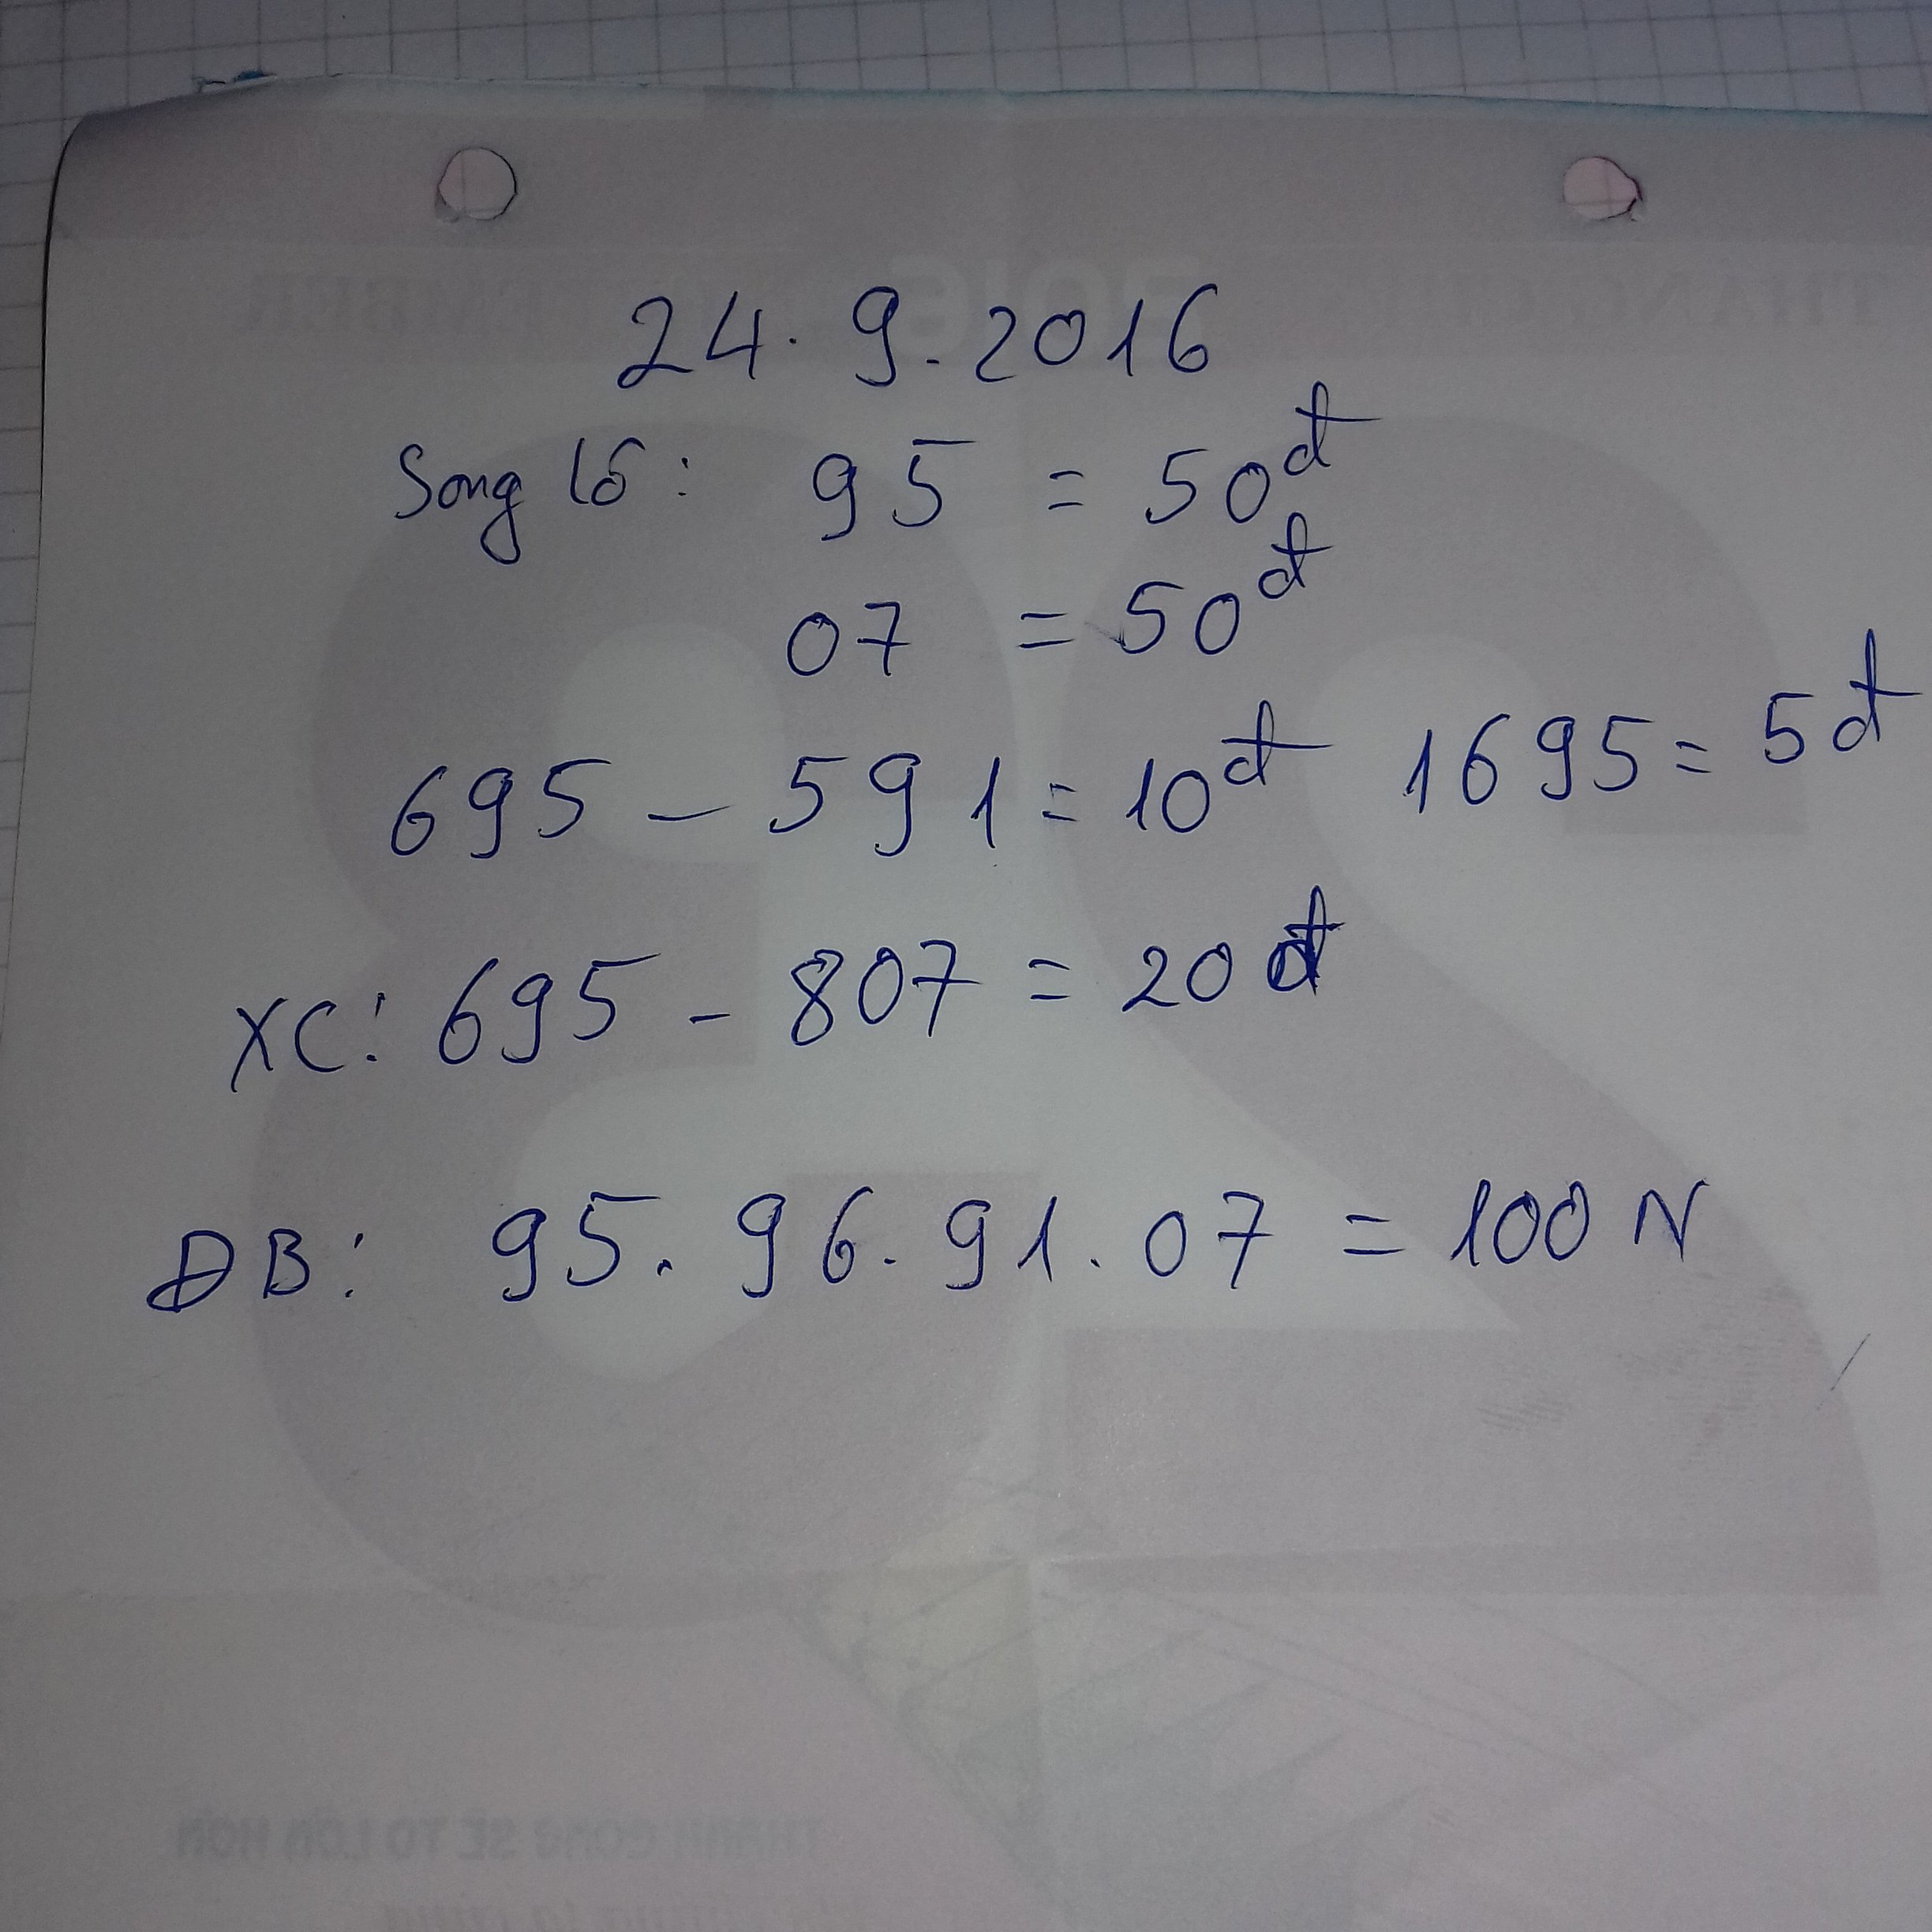 24.9.2016
Song lô: 95 = 50đ
07 = 50đ
695 - 591 = 10đ 1695 = 5đ
XC: 695 - 807 = 20đ
ĐB: 95. 96. 91. 07 = 100 N